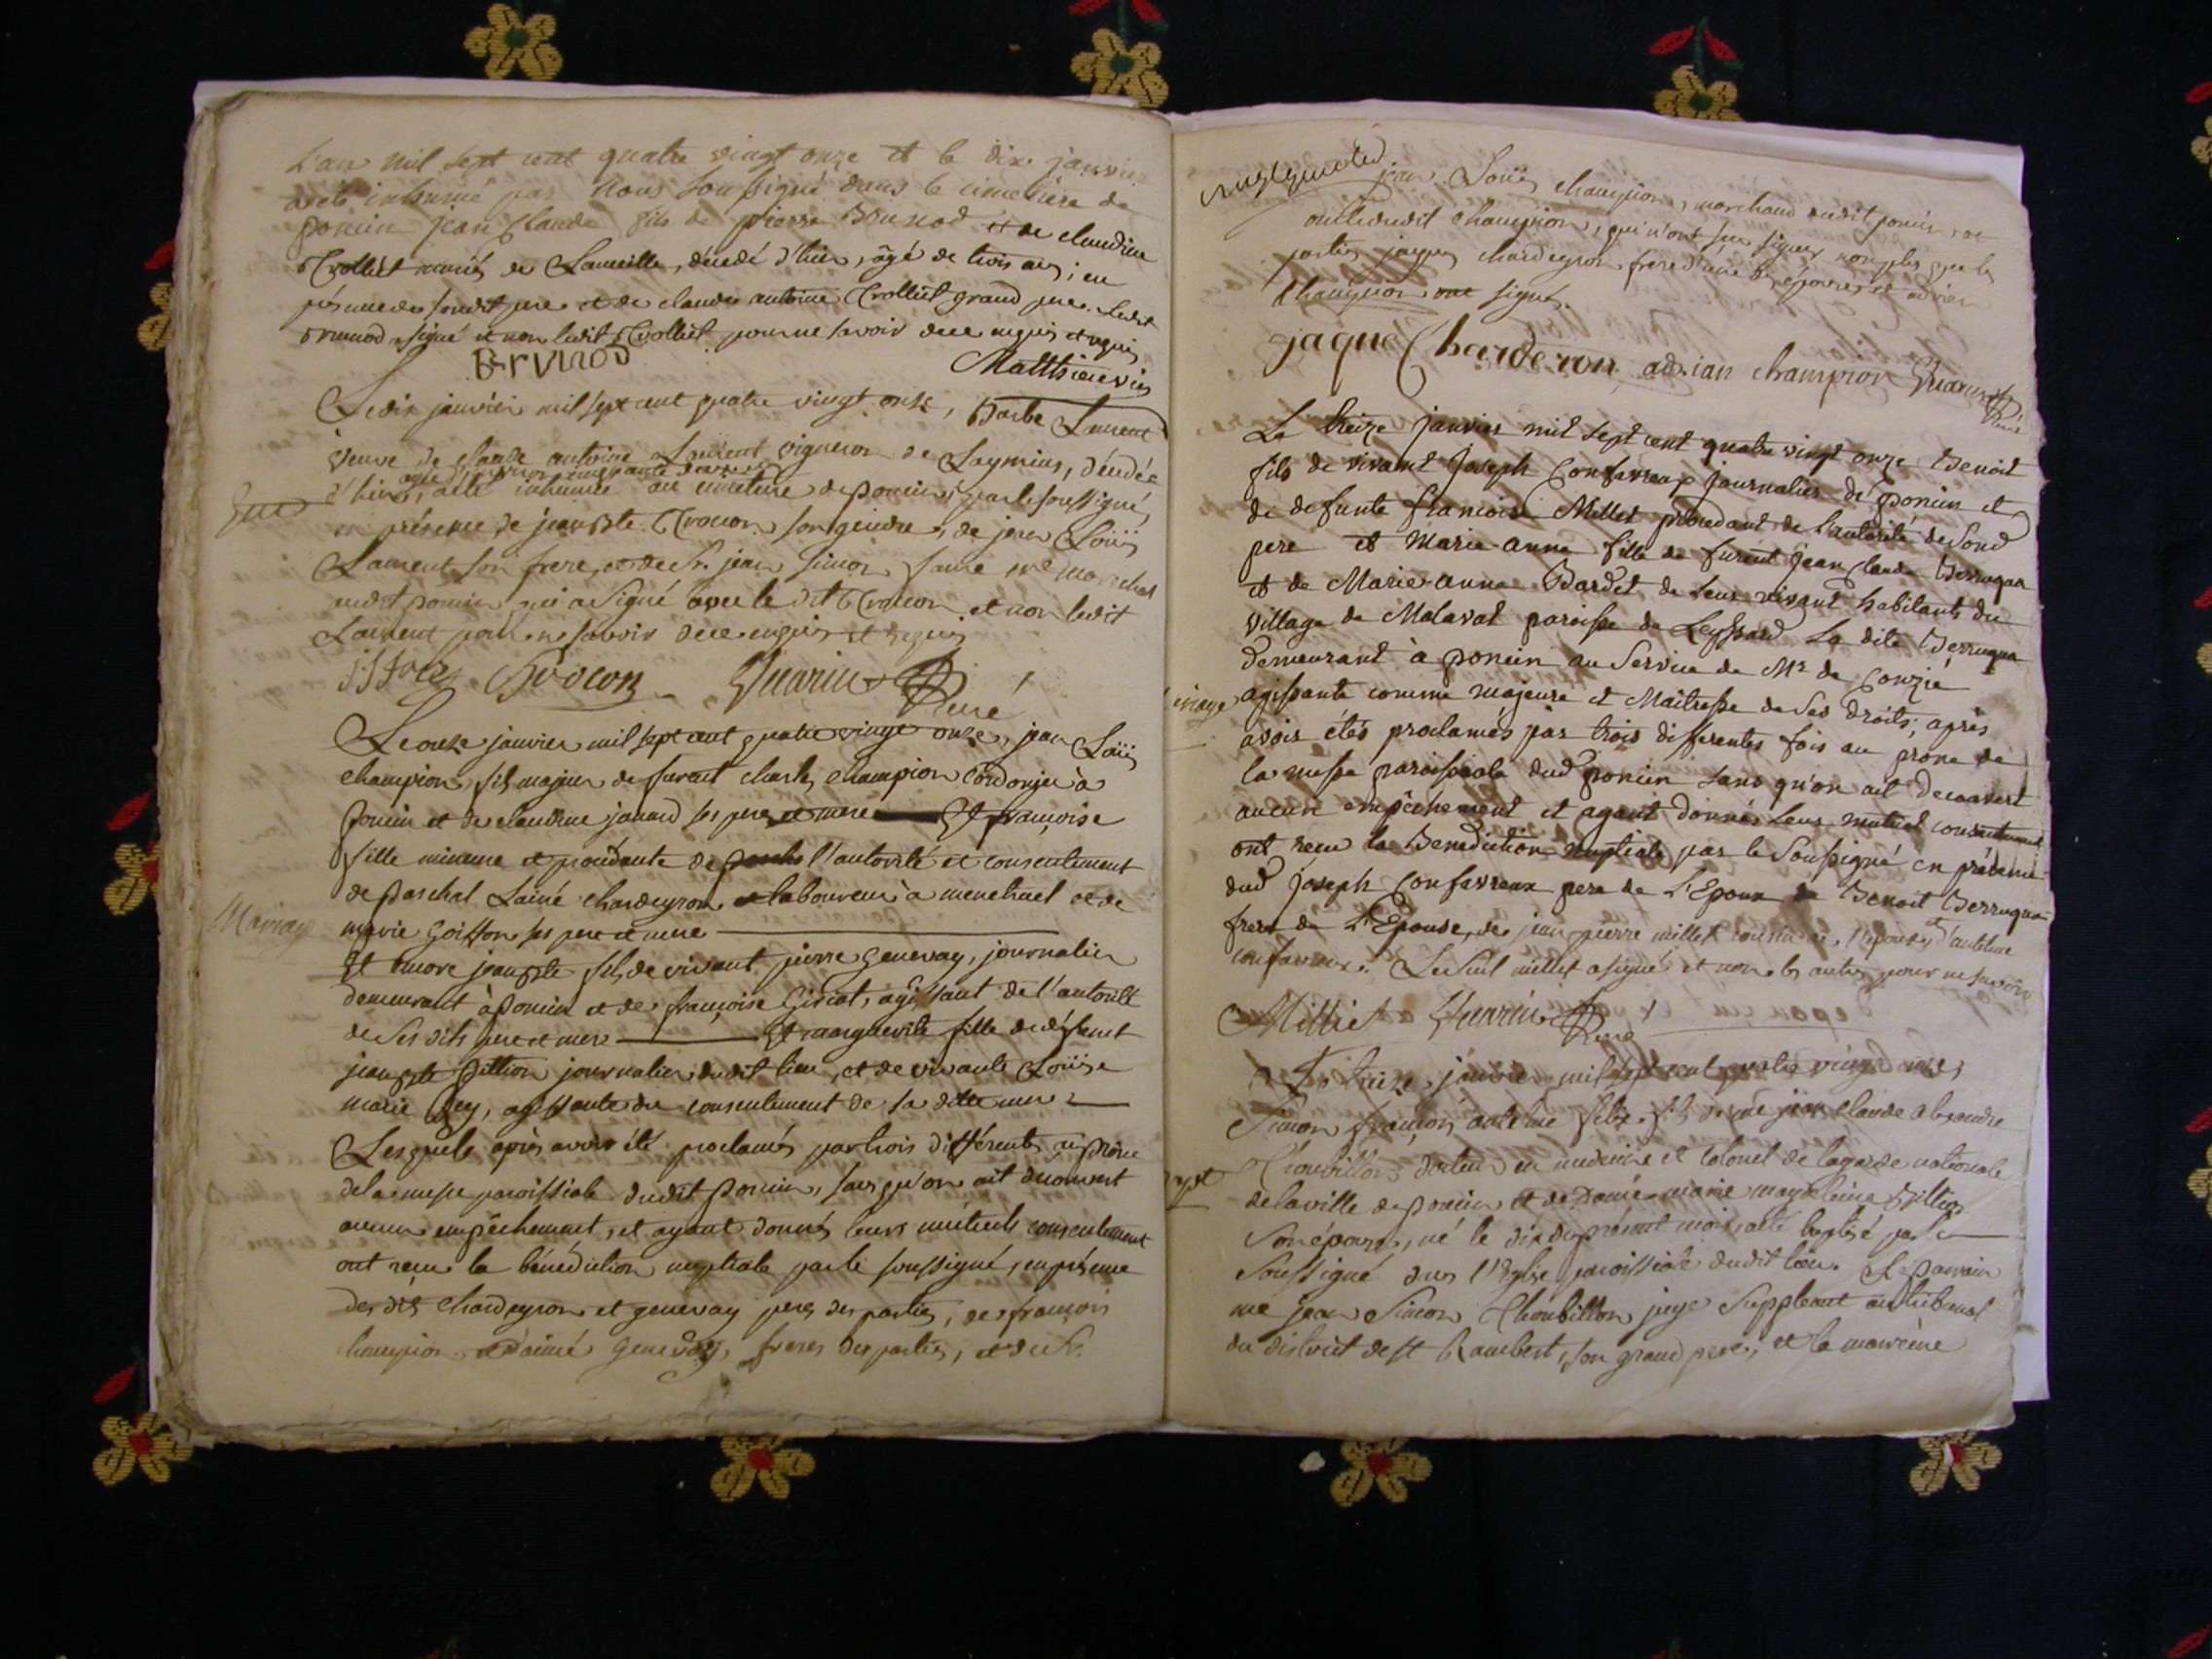 L'an mil sept cent quatre vingt onze et le dix janvier
a été inhumé par nous soussigné dans le cimetiere de
poncin jean Claude fils de pierre Brunod et de claudine
mariés de , décédé d'hier, âgé de trois ans ; en
présence du susdit pere et de claude antoine grand pere. Ledit
Brunod a signé et non ledit pour ne savoir de ce enquis et requis
Brunod
Matthieu vic
Le dix janvier mil sept cent quatre vingt onze, Barbe Laurent
veuve de claude antoine Laurent vigneron de Leymiat, décédée
d'hier, agée d'environ a été inhumée au cimetiere de poncin, par le soussigné,
en présence de jean Bte son gendre, de jean Loüis
Laurent son frere, et de Sr. jean Simon marchand
audit poncin qui a signé avec le dit et non ledit
Laurent pour ne savoir de ce enquis et requis
Guarin
Curé
Le onze janvier mil sept cent quatre vingt onze, jean Loüis
champion, fils majeur de furent charles champion cordonier à
poncin et de claudine janard ses pere et mere Et françoise
fille mineure et procédante de l'autorité et consentement
de paschal L'ainé chardeyron laboureur à menetruel et de
Mariage
marie goitton ses pere et mere
Et encore jean Bte fils de vivant pierre genevay, journalier
demeurant à poncin et de françoise giriat, agissant de l'autorité
de ses dits pere et mere Et marguerite fille de défunct
jean Bte pittion journalier dudit lieu, et de vivante Loüise
marie Rey, agissante du consentement de sa ditte mere
Lesquels après avoir été proclamés par trois différentes au prône
de la messe paroissiale dudit poncin, sans qu'on ait découvert
aucun empêchement, et ayant donnés leurs mutuels consentement
ont reçu la bénédiction nuptiale par le soussigné, en présence
des dits chardeyron et genevay peres des parties, de françois
champion et d'aimé genevay, freres des parties, et de Sr.
jean Loüis champion, marchand dudit poncin,
oncle dudit champion, qui n'ont sçu signer non plus que les
parties, jaques chardeyron frere d'une des épouses et adrien
champion ont signés.
jaque Charderon adrian champion Guarin
Curé
Le treize janvier mil sept cent quatre vingt onze Benoit
fils de vivant Joseph Confavreux journalier de poncin et
de defunte francoise Millet procédant de l'autorité de sond
pere et Marie-anne fille de furent Jean Claude Berruquar
et de Marie-anne Bardet de leur vivant habitants du
village de Malavat paroisse de Leyssard La dite Berruquar
demeurant à poncin au service de Mr de Conzié
agissante comme majeure et Maitresse de ses droits ; après
avoir étés proclamés par trois differentes fois au prone de
la messe paroissiale dud poncin sans qu'on ait decouvert
aucun empêchement et ayant donnés leur mutuel consentement
ont recu la Benediction nuptiale par le Soussigné en présence
dud Joseph Confavreux pere de L'Epoux de Benoit Berruquar
frere de L'Epouse, de jean pierre millet cousin de l'époux, et d'antelme
confavreux. Le Seul millet a signé et non les autres pour ne savoir
Milliet Guarin
Curé
Le treize janvier mil sept cent quatre vingt onze,
Simon françois antelme felix fils de me jean claude alexandre
Choubillon docteur en medecine et colonel de la garde nationale
de la ville de poncin et de Dame marie magdeleine
Son épouse, né le dix du présent mois, a été baptisé par le
Soussigné dans l'Eglise paroissiale dudit lieu. Le parrain
me jean Simon Choubillon juge Suppleant au tribunal
du district de St Rambert, son grand pere, et la marreine